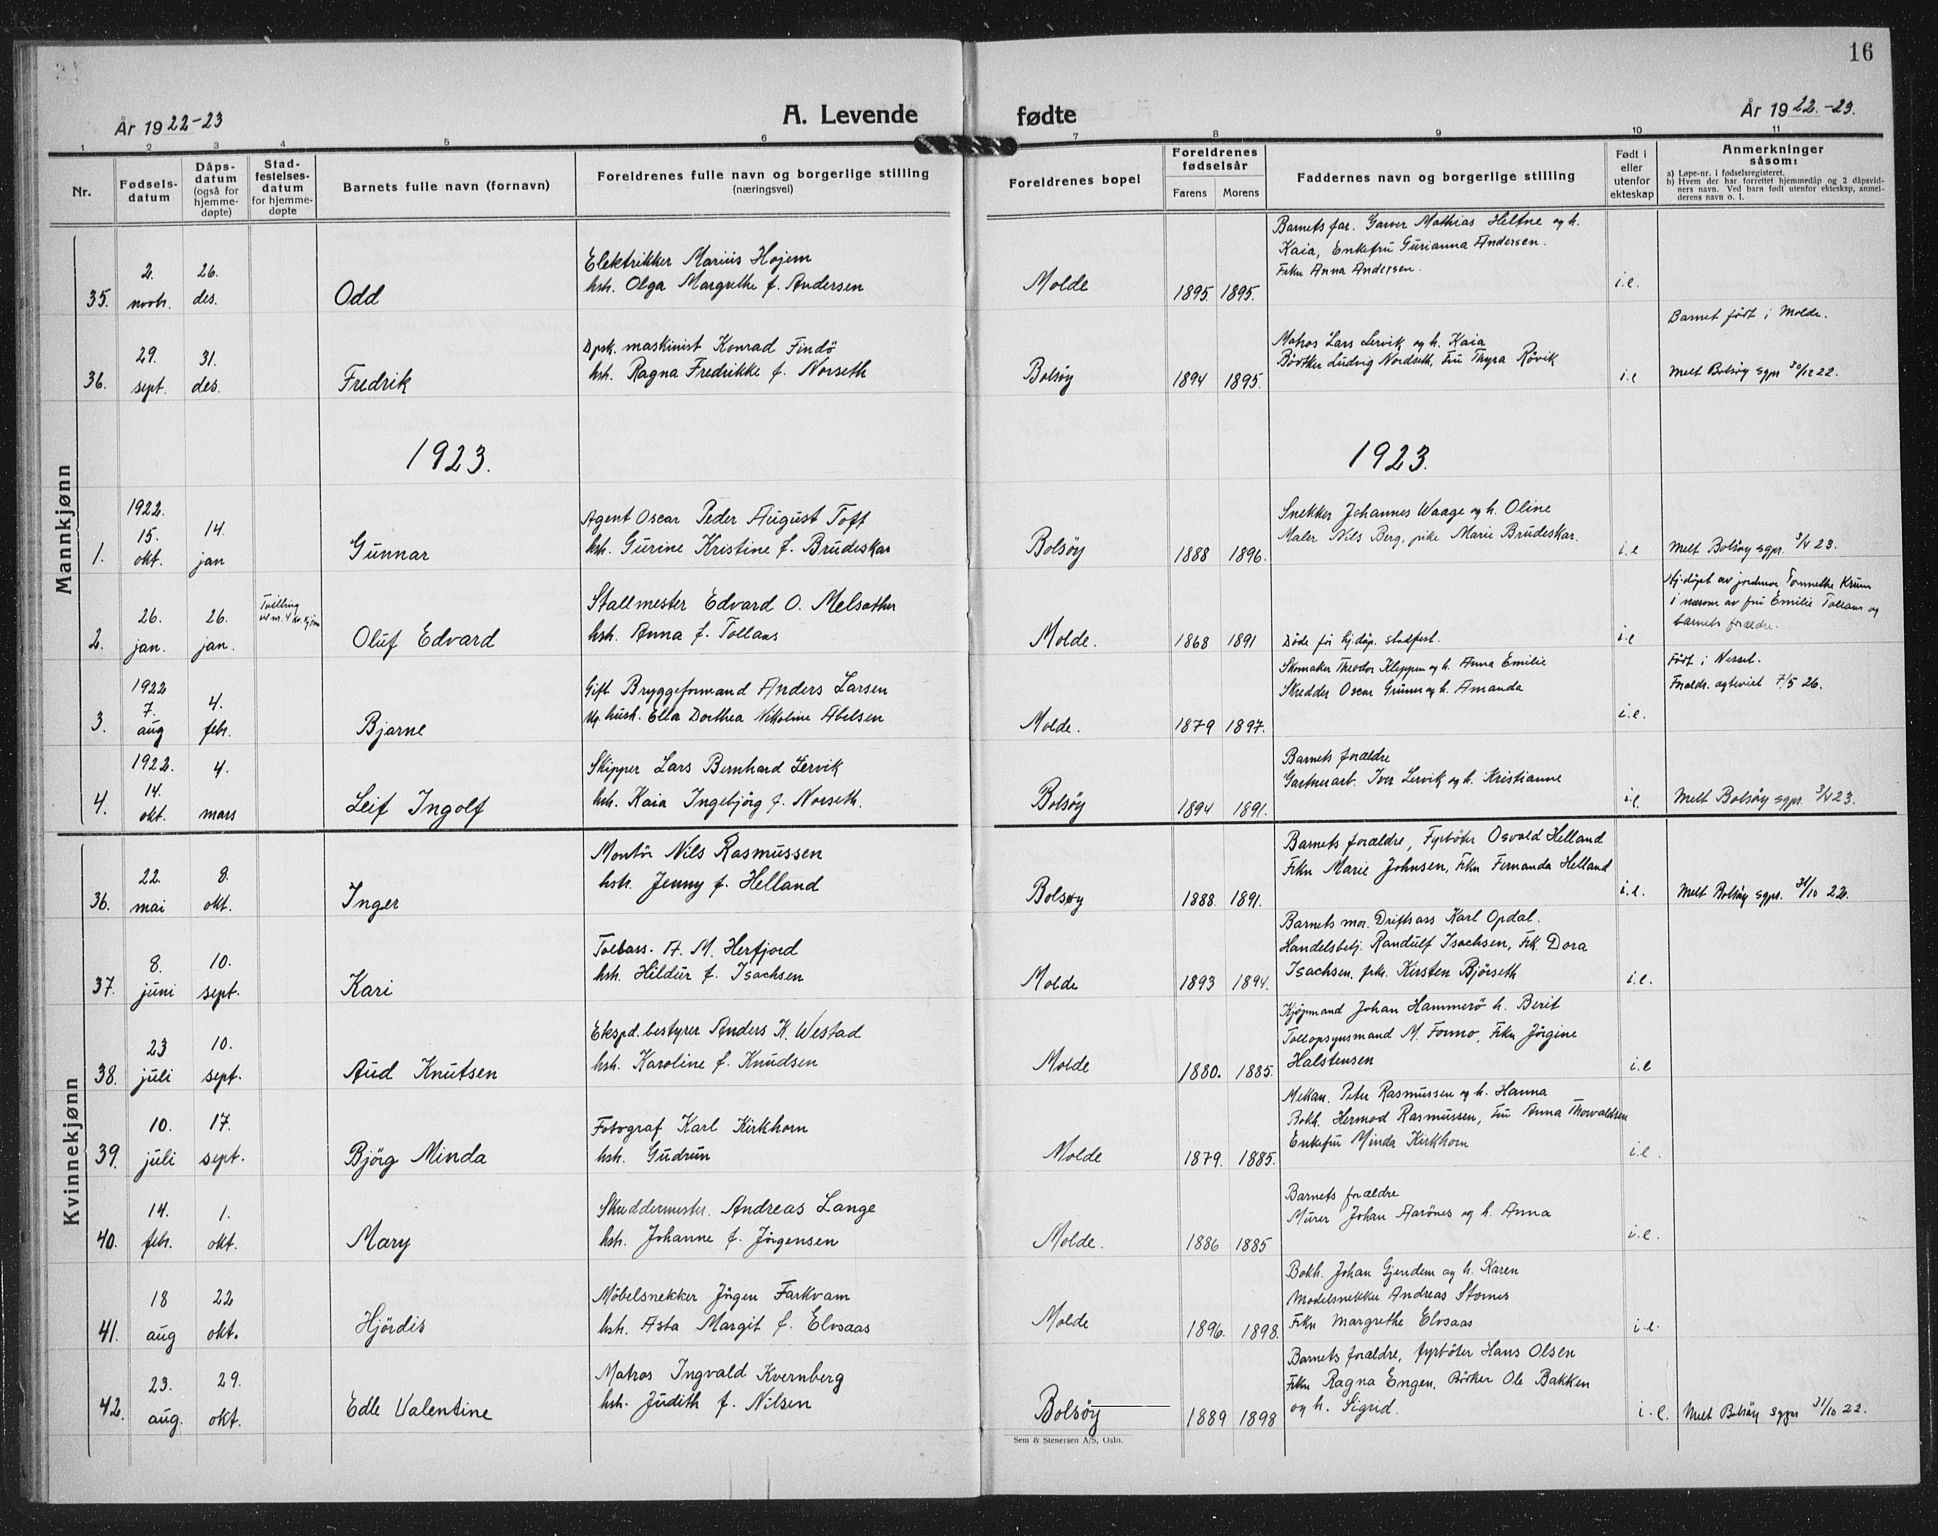 16
År 1922-23
A. Levende fødte
År 1922.-23.
1 2 3 4 5 6 7 8 9 10 11
Nr.
Fødsels-
datum
Dåps-
datum
(også for
hjemme-
døpte)
Stad-
festelses-
datum
for hjemme-
døpte
Barnets fulle navn (fornavn)
Foreldrenes fulle navn og borgerlige stilling
(næringsvei)
Foreldrenes bopel
Foreldrenes
fødselsår
Farens Morens
Faddernes navn og borgerlige stilling
Født i
eller
utenfor
ekteskap
Anmerkninger
såsom:
a) Løpe-nr. i fødselsregisteret.
b) Hvem der har forrettet hjemmedåp og 2 dåpsvid-
ners navn. Ved barn født utenfor ekteskap, anmel-
derens navn o. l.
Mannkjønn
35. 2. novb. 26. des. Odd
Elektrikker Marius Hojem
hstr. Olga Margrethe f. Andersen
Molde 1895. 1895.
Barnets far. Garver Mathias Heltne og h.
Kaia, Enkefru Gurianna Andersen.
Frkn Anna Andersen.
i.e.
36. 29. sept. 31. des. Fredrik
Dpsk. maskinist Konrad Findö
hstr. Ragna Fredrikke f. Norseth
Bolsöy 1894 1895.
Matros Lars Lervik og h. Kaia
Bödtker Ludvig Nordseth, Fru Thyra Rövik
i.e
Barnet født i Molde.
Melt Bolsöy sgpr 30/12 22.
1923. 1923.
1. 1922. 15. okt. 14 jan Gunnar
Agent Oscar Peder August Toft
hstr. Gurine Kristine f. Brudeskar
Bolsöy 1888 1896.
Snekker Johannes Waage og h. Oline
Maler Nils Berg, pike Marie Brudeskar.
i.e
Melt Bolsöy sgpr. 3/4 23.
2. 26. jan. 26. jan. Tvilling
Oluf Edvard
Stallmester Edvard O. Melsæther
hstr. Anna f. Tollaas
Molde. 1868 1891
Döde för hj.döp. stadfest.
i.e
Hj.döpt av jordmor Tonnethe Krum
i nærvær av fru Emilie Tollaas og
barnets forældre.
3. 1922 7. aug 4. febr. Bjarne
Gift Bryggeformand Anders Larsen
Ug. hush. Ella Dorthea Nikoline Abelsen
Molde. 1879 1897.
Skomaker Theodor Kleppen og h. Anna Emilie
Skredder Oscar Gruner og h. Amanda
i.e.
Født i Nesset.
Foreldr. egteviet 7/5 26.
4. 1922. 14. okt. 4. mars Leif Ingolf
Skipper Lars Bernhard Lervik
hstr. Kaia Ingebjörg f. Norseth.
Bolsöy 1894 1891.
Barnets forældre
Gartnerarb. Iver Lervik og h. Kristianne
i.e.
Melt Bolsöy sgpr. 3/4 23.
Kvinnekjønn
36. 22. mai 8. okt. Inger
Montör Nils Rasmussen
hstr. Jenny f. Helland
Bolsøy 1888. 1891.
Barnets forældre, Fyrböter Osvald Helland
Frkn Marie Johnsen, Frkn Fernanda Helland
i.e.
Melt Bolsöy sgpr. 31/10 22.
37. 8. juni 10. sept. Kari
Tollass. A. M. Herfjord
hstr. Hildur f. Isachsen
Molde 1893 1894.
Barnets mor. Driftsass Karl Opdal.
Handelsbetj. Randulf Isachsen, Frk. Dora
Isachsen. frkn. Kirsten Bjørseth
i.e.
38. 23 juli 10. sept. Aud Knutsen
Ekspd.bestyrer Anders K. Westad
hstr. Karoline f. Knudsen
Molde 1880. 1885.
Kjöpmand Johan Hammerö h. Berit
Tollopsynsmand M. Formo, Frkn Jörgine
Halstensen
i.e
39. 10. juli 17. sept. Bjørg Minda
Fotograf Karl Kirkhorn
hstr. Gudrun
Molde 1879. 1885.
Mekan. Peter Rasmussen og h. Hanna
Bokh. Hermod Rasmussen, Fru Anna Thorvaldsen
Enkefru Minda Kirkhorn
i.e.
40. 14. febr. 1. okt. Mary
Skreddermester. Andreas Lange
hstr. Johanne f. Jörgensen
Molde. 1886 1885
Barnets forældre
Murer Johan Aarönes og h. Anna
i.e.
41. 18 aug 22 okt. Hjördis
Möbelsnekker Jörgen Farkvam
hstr. Asta Margit f. Elvsaas
Molde 1896. 1898.
Bokh. Johan Gjendem og h. Karen
Modelsnekker Andreas Stornes
Frkn Margrethe Elvsaas
i.e.
42. 23. aug. 29. okt. Edle Valentine
Matros Ingvald Kvernberg
hstr. Judith f. Nilsen
Bolsöy 1889 1898
Barnets forældre, fyrböter Hans Olsen
Frkn Ragna Engen, Bödker Ole Bakken
og h. Sigrid.
i.e.
Melt Bolsöy sgpr 31/10 22.
Sem & Stenersen A/S, Oslo.